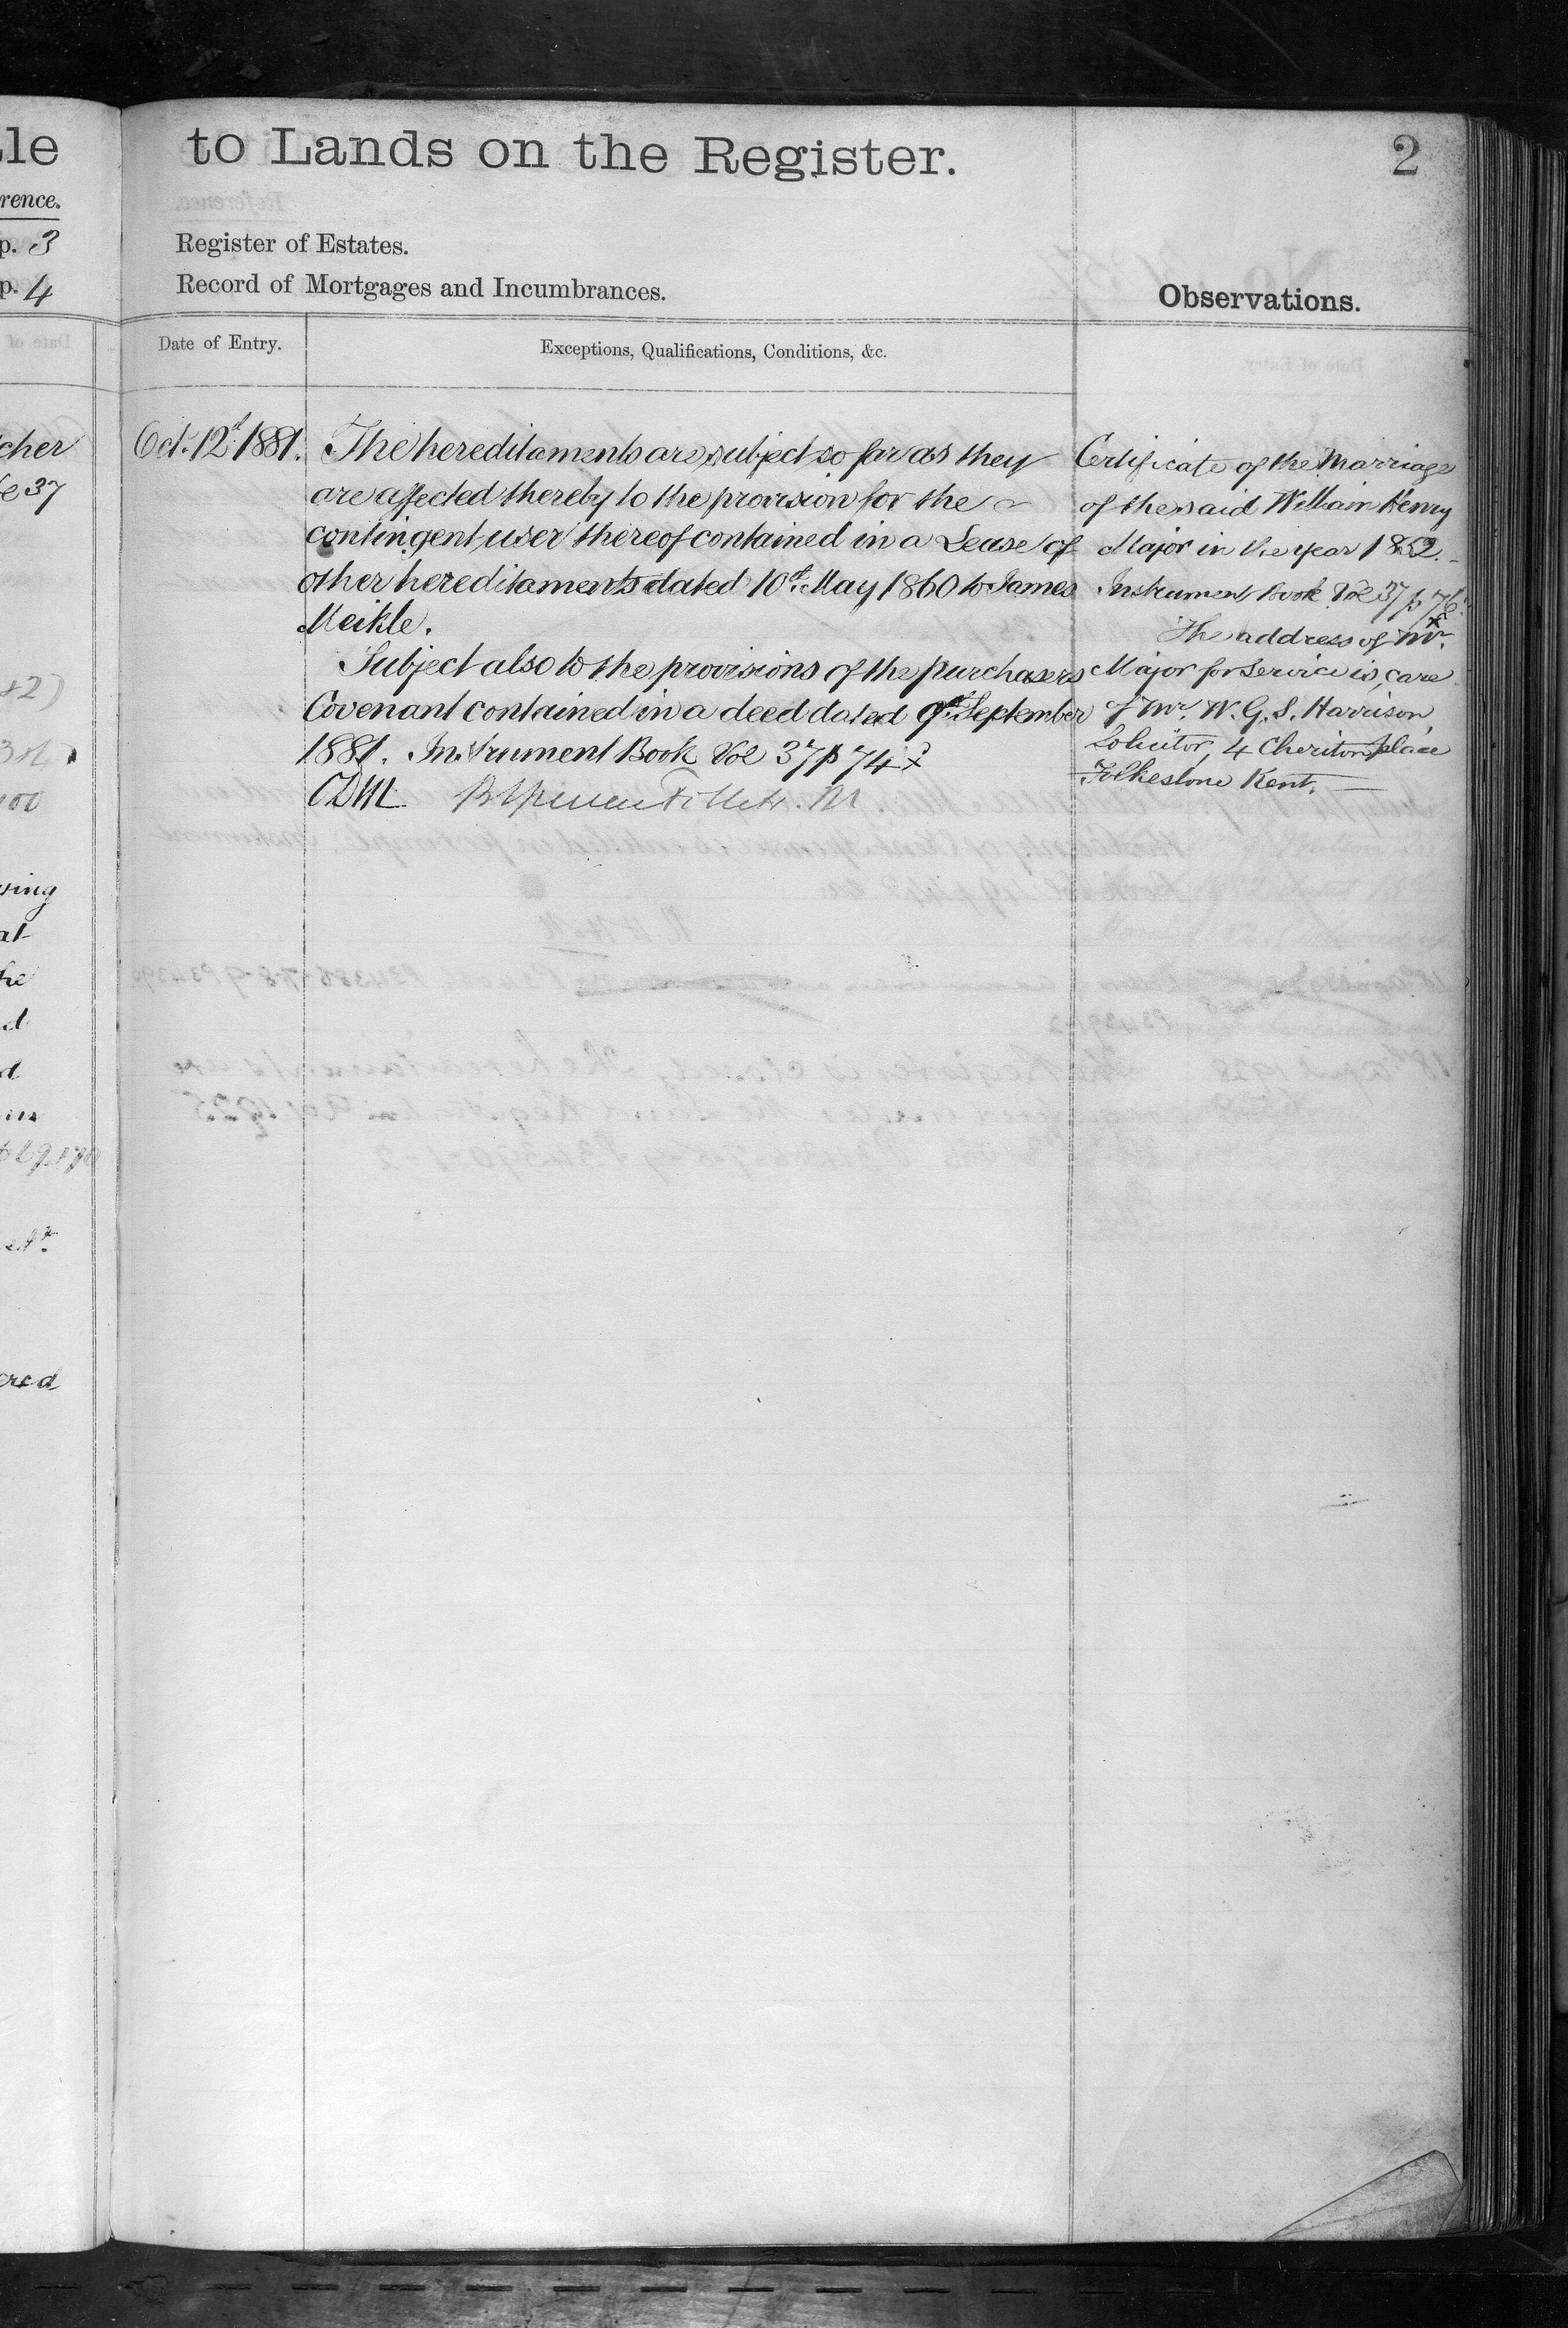 le
rence.
p. 3
p. 4
to Lands on the Register.
2
Register of Estates.
Record of Mortgages and Incumbrances.
Observations.
Date of Entry.
Exceptions, Qualifications, Conditions, &c.
cher
37
Oct. 12th 1881.
The hereditaments are subject so far as they
are affected thereby to the provision for the
contingent user thereof contained in a Lease of
other hereditaments dated 10th May 1860 to James
Meikle.
Subject also to the provisions of the purchasers
Covenant contained in a deed dated 9th September
1881. Instrument Book Vol 37 p 74
Certificate of the Marriage
of the said William Henry
Major in the year 1852.
Instrument book Vol 37 p 76
The address of Mr.
Major for service is, care
of Mr. W. G. S. Harrison
Solicitor, 4 Cheriton place
Folkestone Kent.
ered